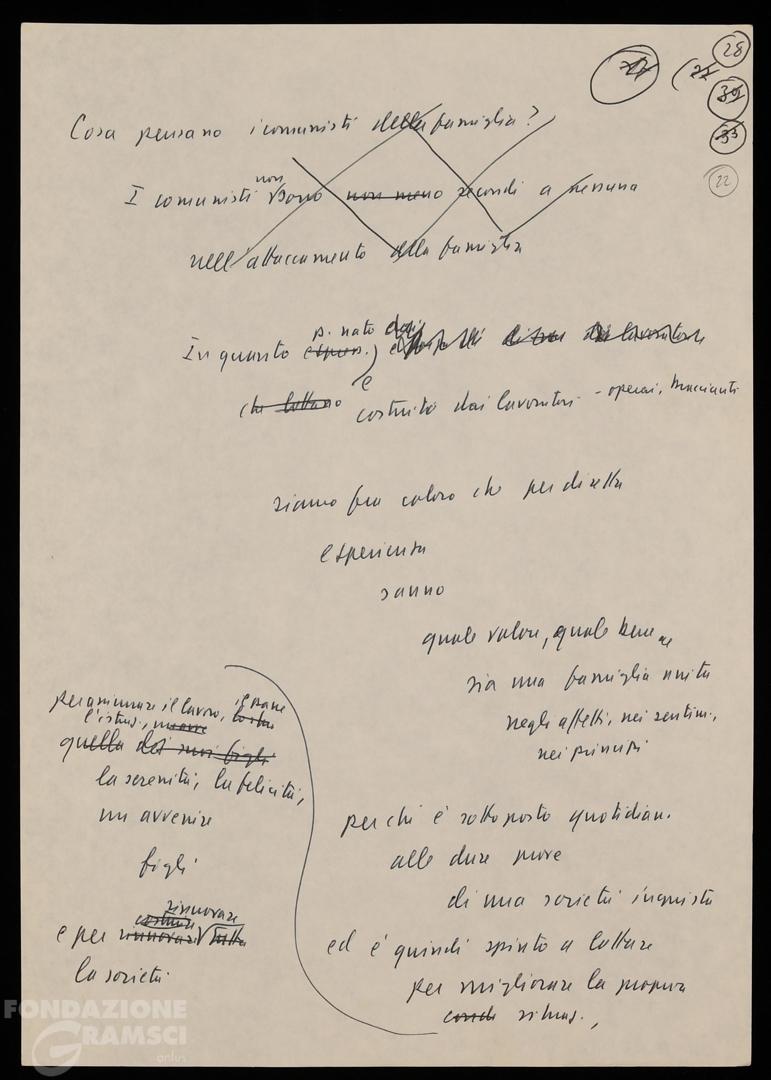 28
22
39
33
22
Cosa pensano i comunisti della famiglia?
non
I comunisti sono non meno secondi a nessuno
nell'attaccamento alla famiglia
p. nato dai
In quanto
e
che lottano costruito dai lavoratori - operai, braccianti
siamo fra coloro che per diretta
esperienza
sanno
quale valore, quale bene
sia una famiglia unita
negli affetti, nei sentim.,
nei principi
perché è sottoposto quotidian.
alle dure prove
di una società ingiusta
ed è quindi spinto a lottare
per migliorare la propria
condi situaz.,
per assicurare il lavoro, il pane
l'istruz.,
quella dei suoi figli
la serenità, la felicità,
un avvenire
figli
rinnovare
costruire
e per rinnovare tutta
la società
FONDAZIONE
GRAMSCI
onlus